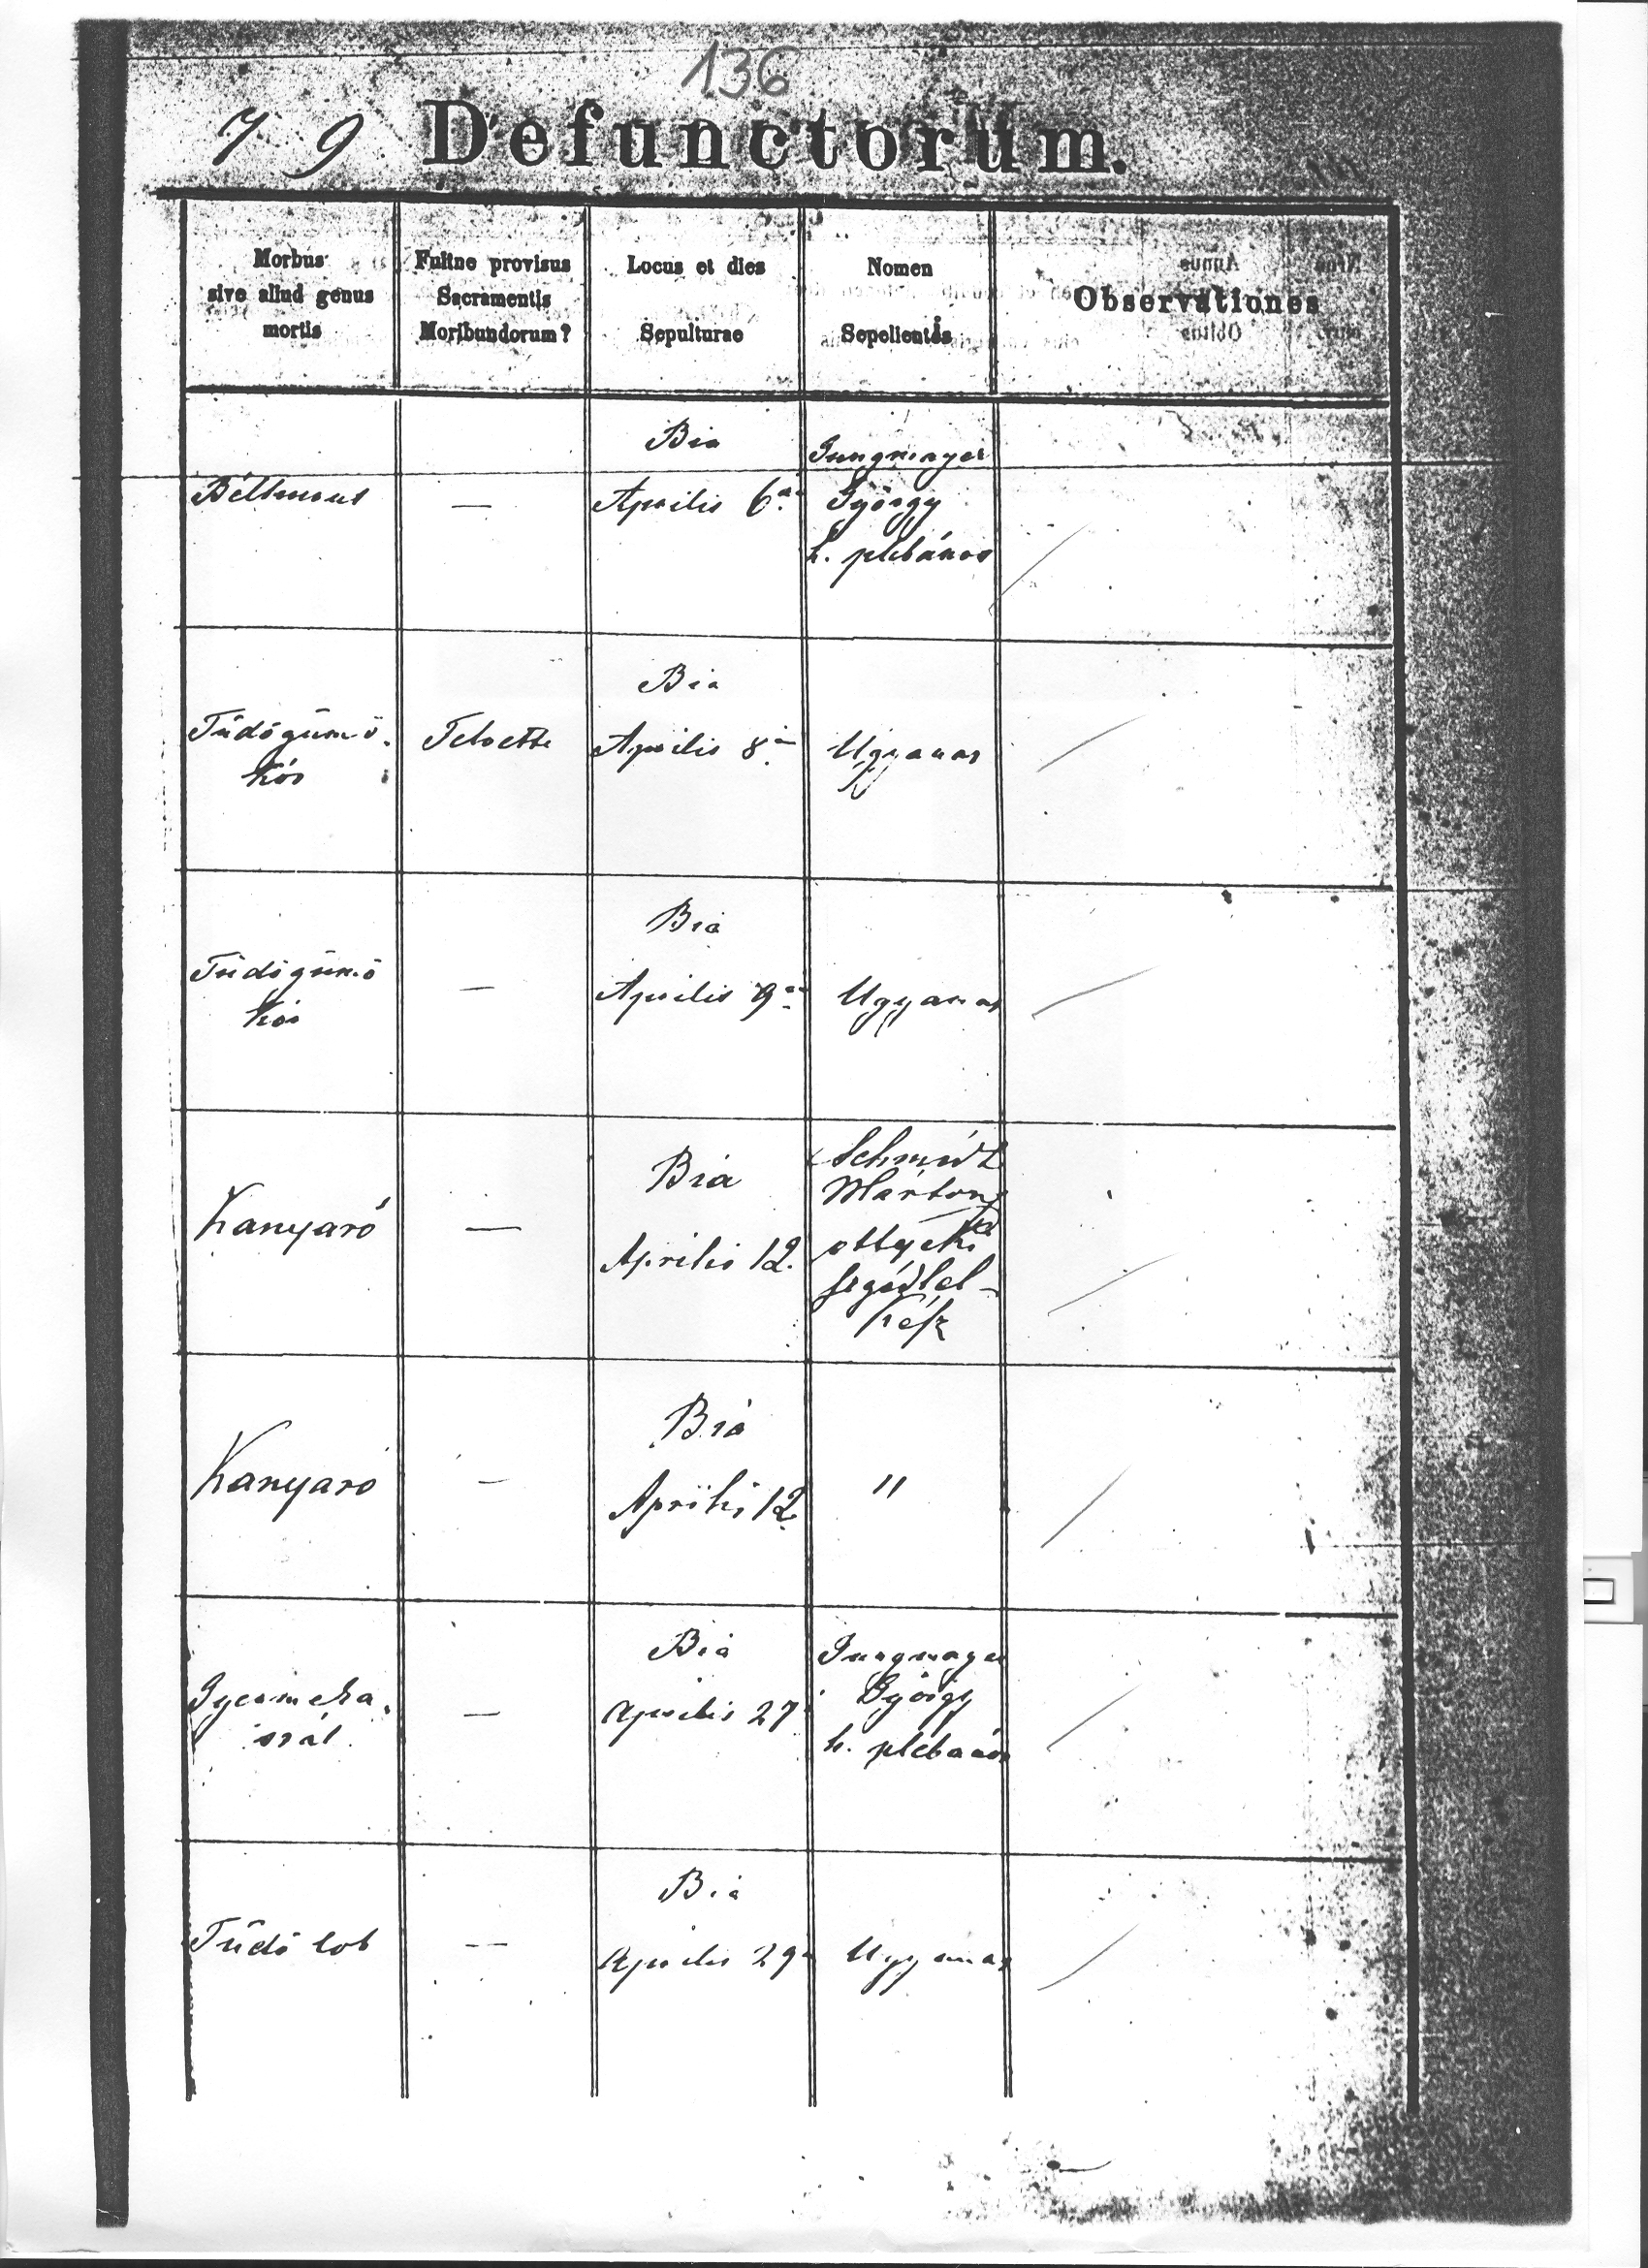 136
7 9 Defunctorum.
Morbus
sive aliud genus
mortis
Fuitne provisus
Sacramentis
Moribundorum?
Locus et dies
Sepulturae
Nomen
Sepelientis
Observationes
Bélhurut
—
Bia
Aprilis 6án
Jungmayer
György
h. plébános
Tüdőgümő
kór
Felvette
Bia
Aprilis 8án
Ugyanaz
Tüdőgümő
kór
—
Bia
Aprilis 9én
Ugyanaz
Kanyaró
—
Bia
Április 12.
Schmidt
Márton
segédlel-
kész
Kanyaró
—
Bia
Április 12.
"
Gyermeka
szál
—
Bia
Aprilis 27
Jungmayer
György
h. plébános
Tüdő lob
—
Bia
Aprilis 29
Ugyanaz